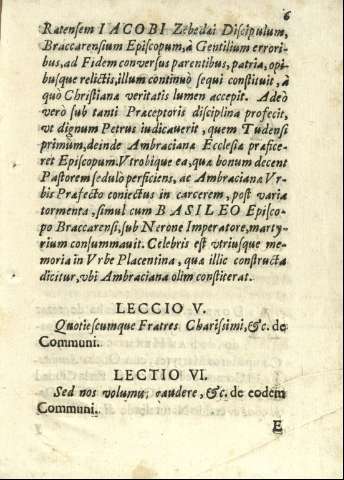 6
Ratensem IACOBI Zebedæi Discipulum,
Braccarensium Episcopum, à Gentilium errori-
bus, ad Fidem conversus parentibus, patria, opi-
busque relictis, illum continuò sequi constituit, à
quò Christiana veritatis lumen accepit. Adeò
verò sub tanti Præceptoris disciplina profecit,
vt dignum Petrus iudicauerit, quem Tudensi
primum, deinde Ambraciana Ecclesiæ præfice-
ret Episcopum. Vtrobique ea, quæ bonum decent
Pastorem sedulò perficiens, ac Ambraciana Vr-
bis Præfecto coniectus in carcerem, post varia
tormenta, simul cum BASILEO Episco-
po Braccarensi, sub Nerone Imperatore, marty-
rium consummauit. Celebris est vtriusque me-
moria in Vrbe Placentina, quæ illic constructa
dicitur, vbi Ambraciana olim constiterat.
LECCIO V.
Quotiescumque Fratres Charissimi, &c. de
Communi.
LECTIO VI.
Sed nos volumus gaudere, &c. de eodem
Communi.
E